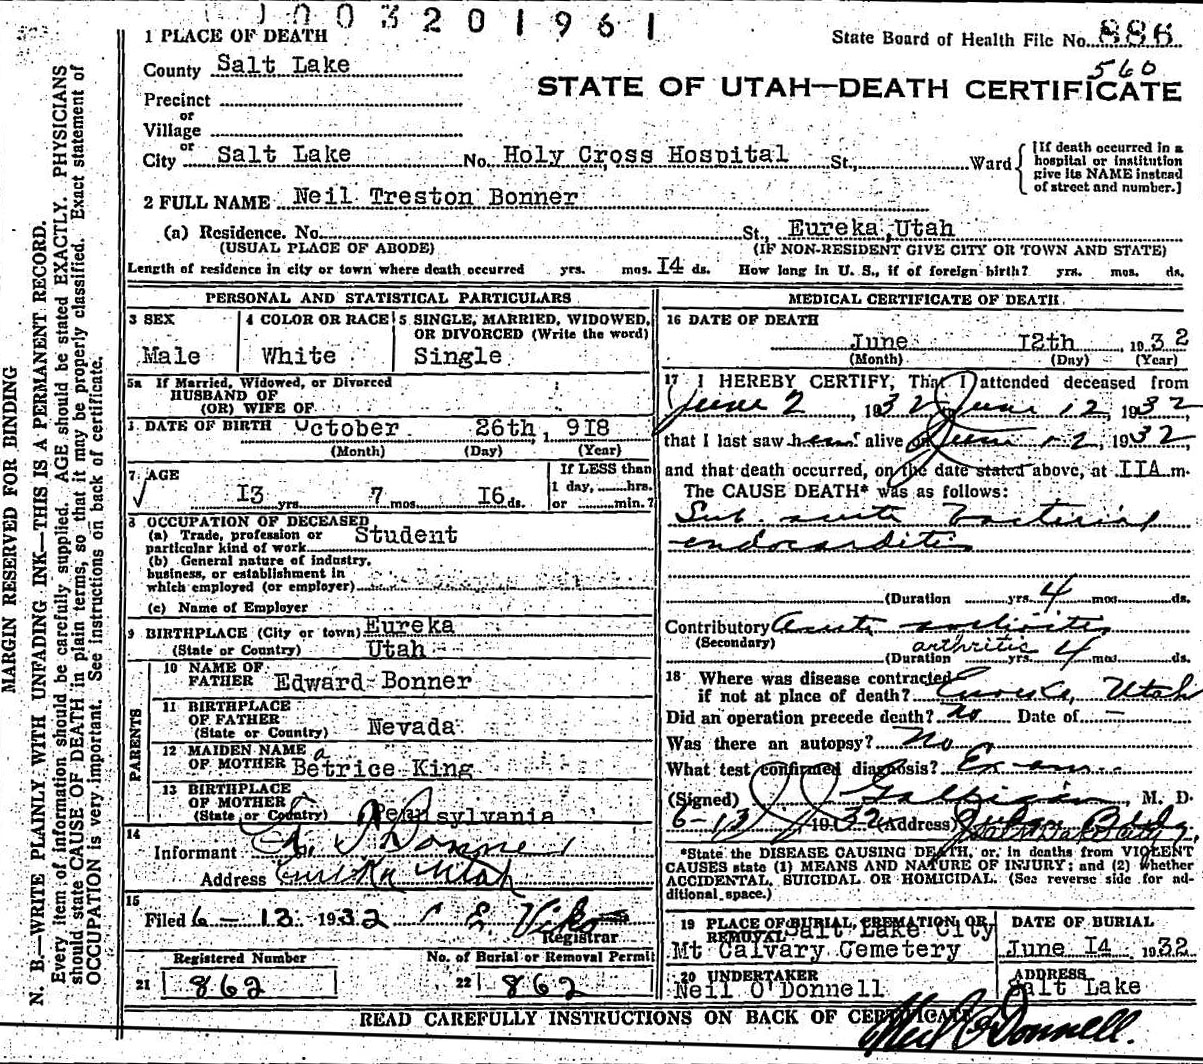 1003201961
1 PLACE OF DEATH
State Board of Health File No. 886
560
County Salt Lake
STATE OF UTAH—DEATH CERTIFICATE
Precinct
or
Village
or
City Salt Lake No. Holy Cross Hospital St., Ward
[If death occurred in a
hospital or institution
give its NAME instead
of street and number.]
2 FULL NAME Neil Treston Bonner
(a) Residence. No. St., Eureka, Utah
(USUAL PLACE OF ABODE) (IF NON-RESIDENT GIVE CITY OR TOWN AND STATE)
Length of residence in city or town where death occurred yrs. mos. I4 ds. How long in U. S., if of foreign birth? yrs. mos. ds.
PERSONAL AND STATISTICAL PARTICULARS
3 SEX
Male
4 COLOR OR RACE
White
5 SINGLE, MARRIED, WIDOWED,
OR DIVORCED (Write the word)
Single
5a If Married, Widowed, or Divorced
HUSBAND OF
(OR) WIFE OF
DATE OF BIRTH October 26th, 1918
(Month) (Day) (Year)
7 AGE
I3 yrs. 7 mos. I6 ds.
If LESS than
1 day, hrs.
or min.?
8 OCCUPATION OF DECEASED
(a) Trade, profession or
particular kind of work Student
(b) General nature of industry,
business, or establishment in
which employed (or employer)
(c) Name of Employer
9 BIRTHPLACE (City or town) Eureka
(State or Country) Utah
PARENTS
10 NAME OF
FATHER Edward Bonner
11 BIRTHPLACE
OF FATHER
(State or Country) Nevada
12 MAIDEN NAME
OF MOTHER Betrice King
a
13 BIRTHPLACE
OF MOTHER
(State or Country) Pennsylvania
14
Informant Bonner
Address Eureka Utah
15
Filed 6-13 1932 C E Viko
Registrar
Registered Number No. of Burial or Removal Permit
21 862 22 862
MEDICAL CERTIFICATE OF DEATH
16 DATE OF DEATH
June I2th 1932
(Month) (Day) (Year)
17 I HEREBY CERTIFY, That I attended deceased from
June 2, 1932 June 12, 1932
that I last saw him alive on June 12, 1932
and that death occurred, on the date stated above, at IIA m.
The CAUSE DEATH* was as follows:
Sub acute bacterial
endocarditis
(Duration yrs. 4 mos. ds.
Contributory Acute
(Secondary) arthritis
(Duration yrs. 4 mos. ds.
18 Where was disease contracted
if not at place of death? Eureka, Utah
Did an operation precede death? No Date of —
Was there an autopsy? No
What test confirmed diagnosis? Exam
(Signed) J J Galligan, M. D.
6-13, 1932 (Address) Judge Bldg
*State the DISEASE CAUSING DEATH, or, in deaths from VIOLENT
CAUSES state (1) MEANS AND NATURE OF INJURY; and (2) whether
ACCIDENTAL, SUICIDAL OR HOMICIDAL. (See reverse side for ad-
ditional space.)
19 PLACE OF BURIAL, CREMATION OR
REMOVAL Salt Lake City
Mt Calvary Cemetery
DATE OF BURIAL
June I4 1932
20 UNDERTAKER
Neil O'Donnell
ADDRESS
Salt Lake
READ CAREFULLY INSTRUCTIONS ON BACK OF CERTIFICATE
Neil O'Donnell.
MARGIN RESERVED FOR BINDING
N. B.—WRITE PLAINLY WITH UNFADING INK—THIS IS A PERMANENT RECORD.
Every item of information should be carefully supplied. AGE should be stated EXACTLY. PHYSICIANS
should state CAUSE OF DEATH in plain terms, so that it may be properly classified. Exact statement of
OCCUPATION is very important. See instructions on back of certificate.